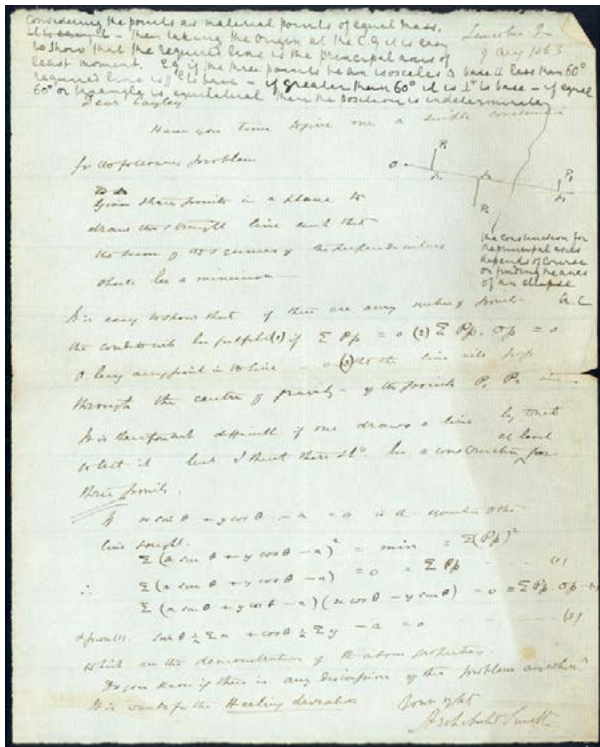 Considering the points as material points of equal mass,
it is easy – then taking the origin at the C.G. it is easy
to show that the required line is the principal axis of
least moment. E.g. if the three points be an isosceles Δ base ∠ less than 60°
required line is ⊥r to base – if greater than 60° it is to base – if equal
60° or triangle is equilateral then the position is indeterminate
Lincoln's Inn
9 Aug 1863
Dear Cayley
Have you time to give me a simple construction
for the following problem
Given three points in a plane to
draw the straight line such that
the sum of the squares of the perpendiculars
shall be a minimum
O P1 p1 p2 P2 P3 p3
the construction for
the principal axes
depends of course
on finding the axes
of an ellipse
A.C
It is easy to show that if there are any number of points
the conditions be fulfilled (1) if Σ Pp = 0 (2) Σ Pp. Op = 0
O being any point in the line – the line will pass
through the centre of gravity of the points P1 P2
It is therefore not difficult if one draws a line
but I think there should be a construction at least for
three points.
If x sin θ + y cos θ – a = 0 is the equation to the
line sought.
Σ (x sin θ + y cos θ – a)² = min = Σ(Pp)²
∴ Σ (x sin θ + y cos θ – a) = 0 = Σ Pp (1)
Σ (x sin θ + y cos θ – a) (x cos θ – y sin θ) = 0 = Σ Pp. Op (2)
& from (1). sin θ Σ x + cos θ Σ y – a = 0
which are the demonstration of the above properties.
Do you know if there is any discussion of this problem anywhere?
It is wanted for the Heeling deviation
Yours
Archibald Smith